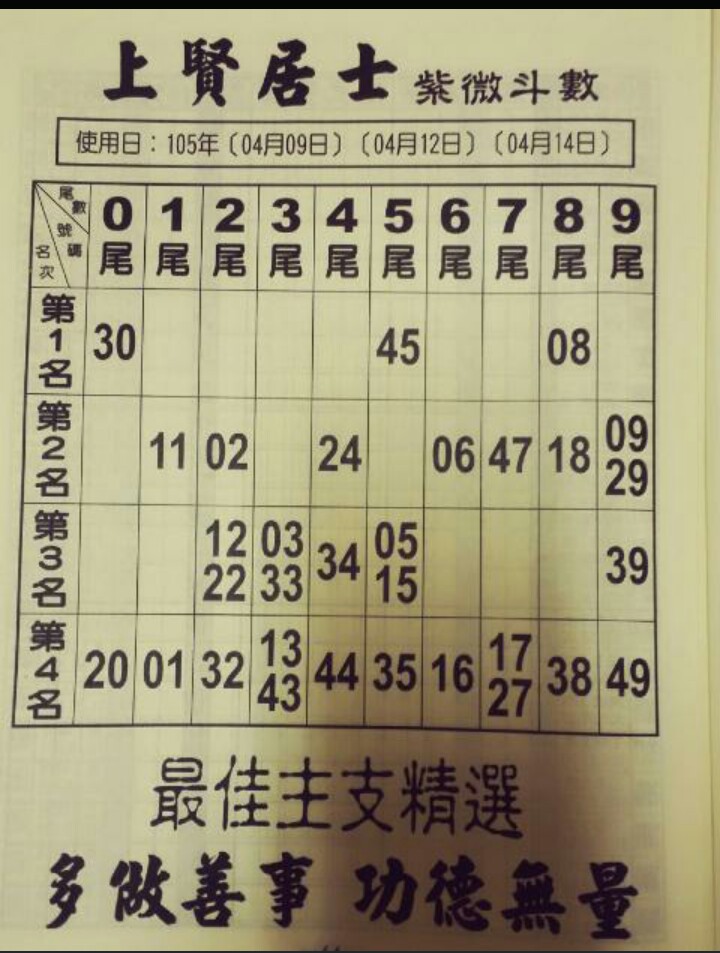 上賢居士 紫微斗數
使用日：105年（04月09日）（04月12日）（04月14日）
尾數 號碼 名次 0尾 1尾 2尾 3尾 4尾 5尾 6尾 7尾 8尾 9尾
第1名 30 45 08
第2名 11 02 24 06 47 18 09 29
第3名 12 22 03 33 34 05 15 39
第4名 20 01 32 13 43 44 35 16 17 27 38 49
最佳主支精選
多做善事 功德無量